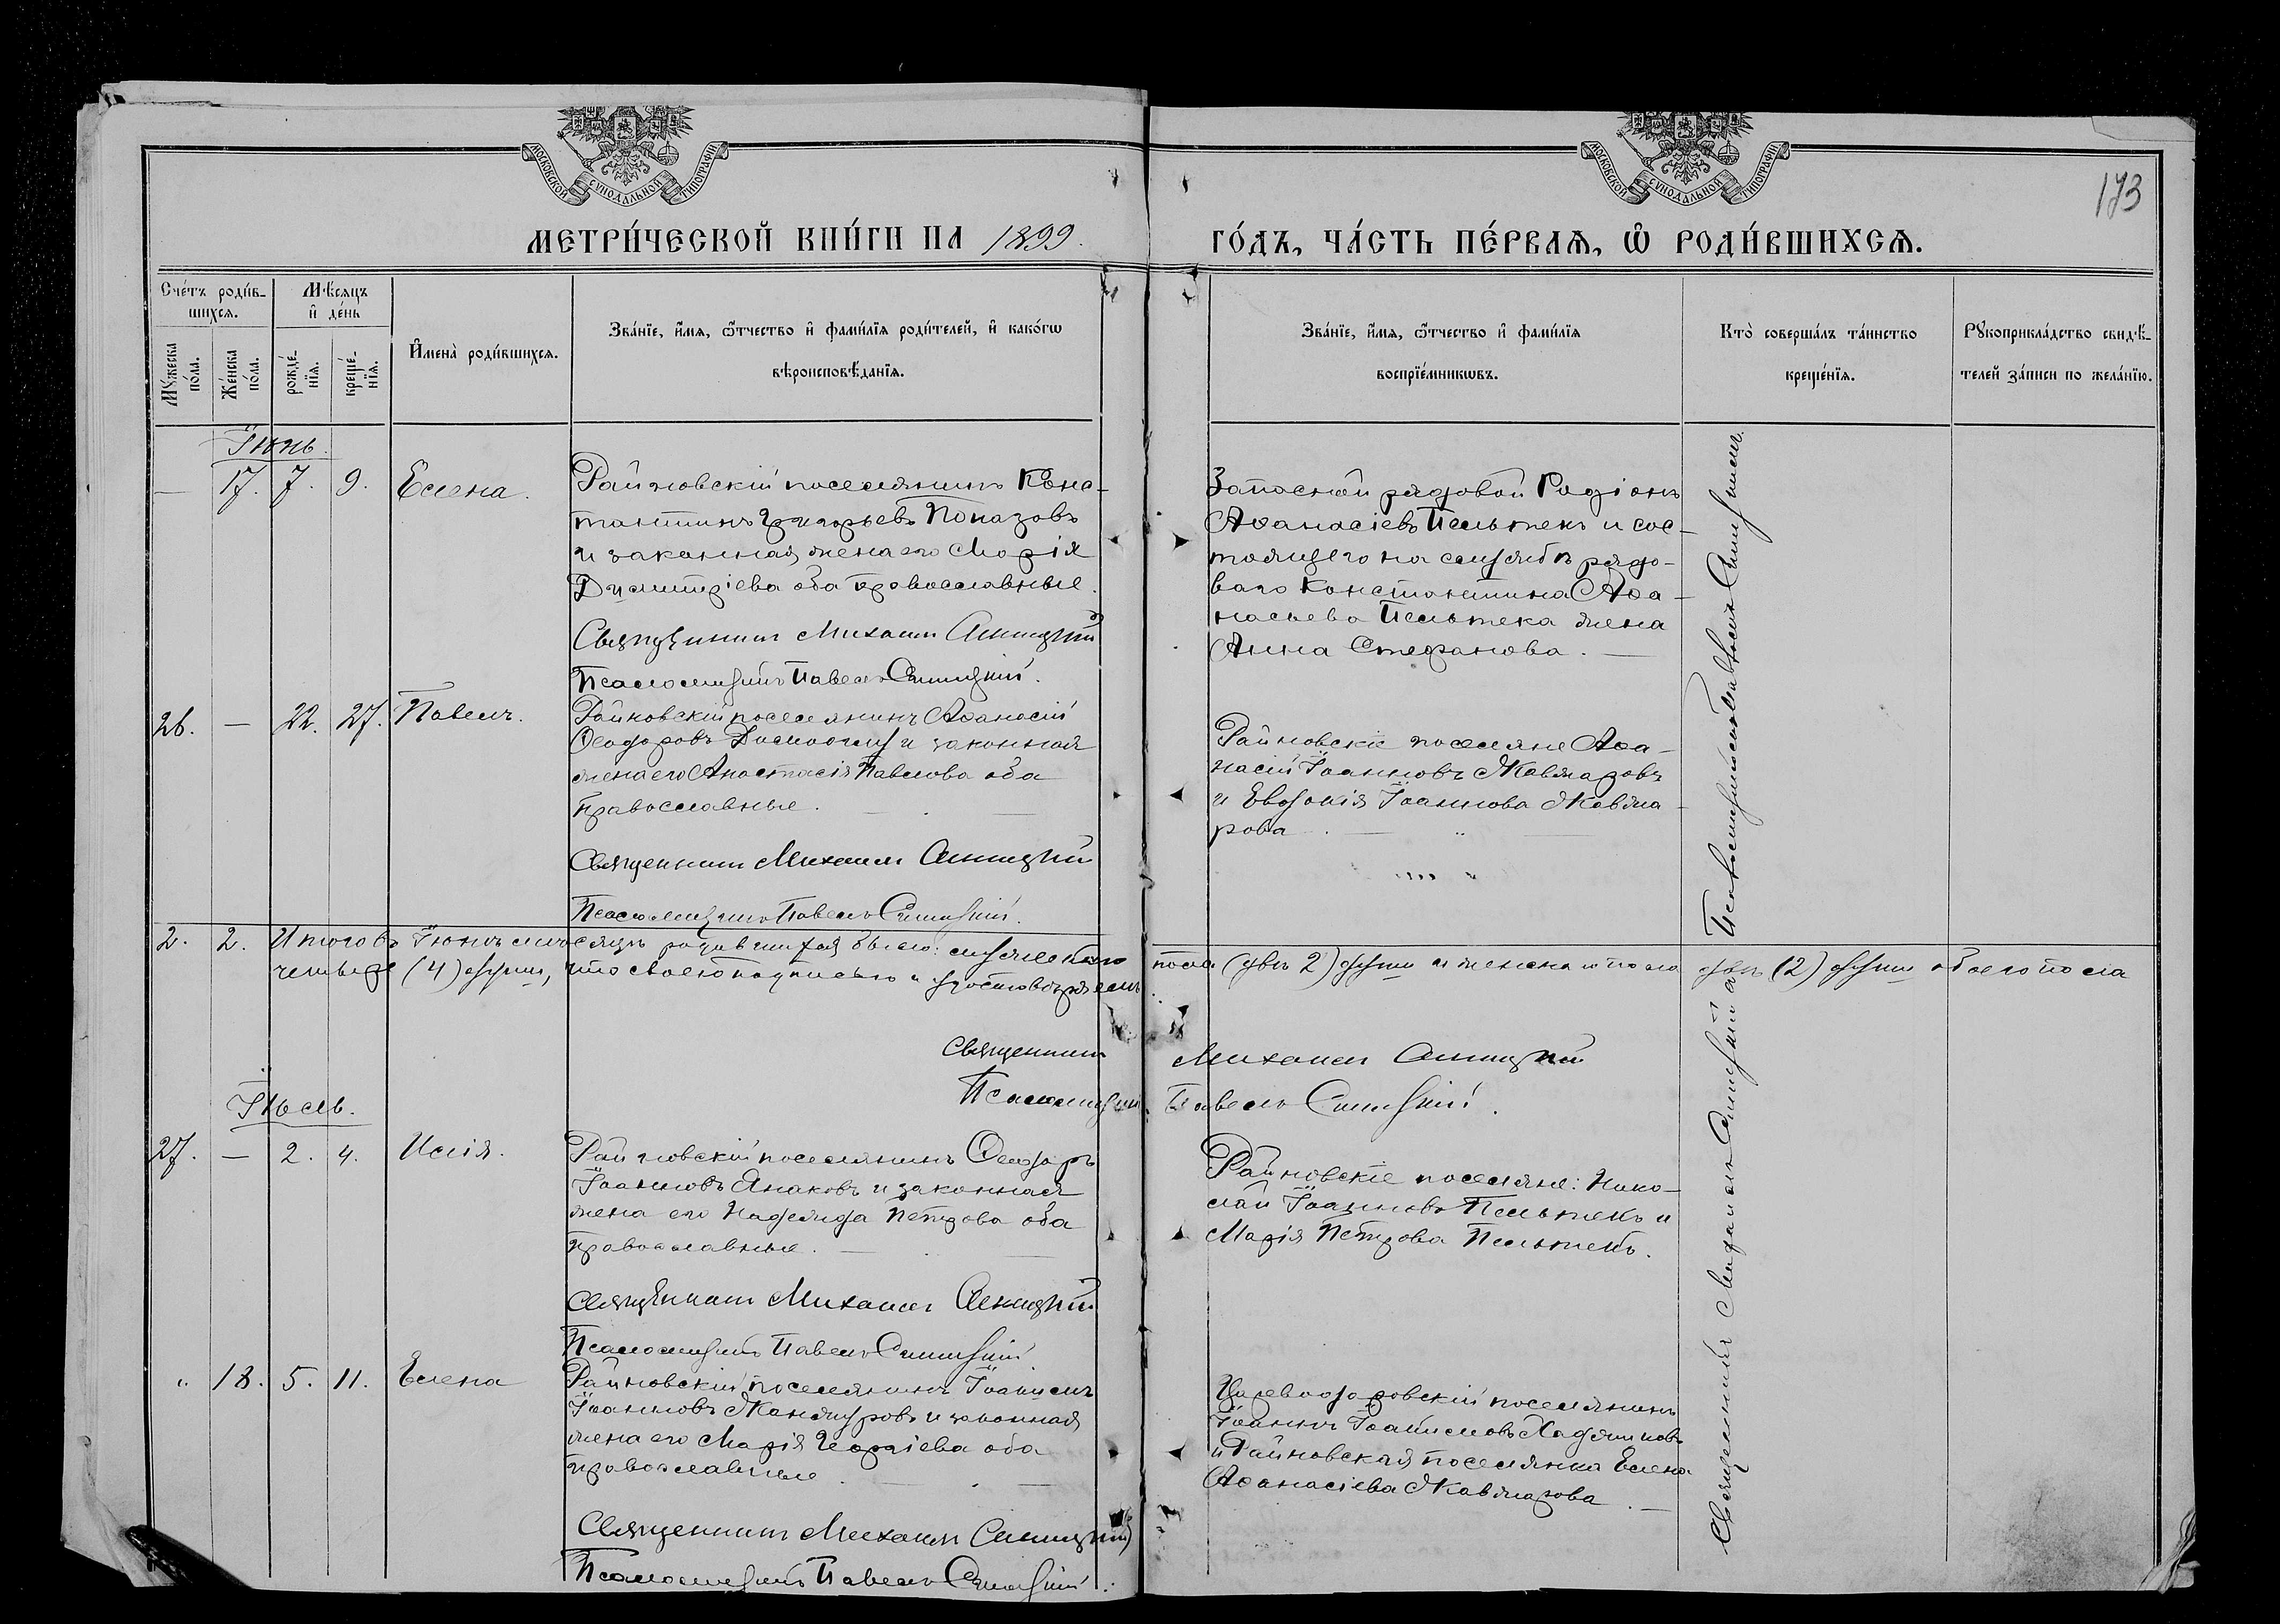 МОСКОВСКОЙ СѴНОДАЛЬНОЙ ТИПОГРАФІИ
МОСКОВСКОЙ СѴНОДАЛЬНОЙ ТИПОГРАФІИ
173
МЕТРИ́ЧЕСКОЙ КНИ́ГИ НА 1899.
ГО́ДЪ, ЧА́СТЬ ПЕ́РВАѦ, Ѡ҆ РОДИ́ВШИХСѦ.
Сче́тъ роди́в-
шихсѧ.
Мѣ́сѧцъ
и҆ де́нь
Мꙋ́жеска
по́ла.
Же́нска
по́ла.
рожде́-
нїѧ.
креще́-
нїѧ.
И҆мена̀ роди́вшихсѧ.
Зва́нїе, и҆́мѧ, ѻ҆́тчество и҆ фами́лїѧ роди́телей, и҆ како́гѡ
вѣроисповѣ́данїѧ.
Зва́нїе, и҆́мѧ, ѻ҆́тчество и҆ фами́лїѧ
воспрїе́мникѡвъ.
Кто̀ соверша́лъ та́инство
креще́нїѧ.
Рꙋкоприкла́дство свидѣ́-
телей за́писи по жела́нїю.
Іюнь.
— 17. 7. 9. Елена.
Райновскій поселянинъ Конс-
тантинъ Григорьевъ Показовъ
и законная жена его Марія
Димитріева оба православные.
Священникъ Михаилъ
Псаломщикъ Павелъ
Запасной рядовой Родіонъ
Аѳанасіевъ Пельтекъ и сос-
тоящего на службѣ рядо-
ваго Константина Аѳа-
насьева Пельтека жена
Анна Стефанова. —
26. — 22. 27. Павелъ.
Райновскій поселянинъ Аѳанасій
Ѳеодоровъ и законная
жена его Анастасія Павлова оба
православные.
Священникъ Михаилъ
Псаломщикъ Павелъ
Райновскіе поселяне Аѳа-
насій Іоанновъ Жавжаровъ
и Евдокія Іоаннова Жавжа-
рова.
2. 2. Итого въ Іюнѣ мѣсяцѣ родившихся было: мужескаго
пола (двѣ 2) души и женскаго пола двѣ (2) души обоего пола
четыре (4) души, что своею подписью и удостовѣряемъ
Священникъ Михаилъ
Псаломщикъ Павелъ
Іюль.
27. — 2. 4. Илія.
Райновскій поселянинъ Ѳеодоръ
Іоанновъ Янаковъ и законная
жена его Надежда Петрова оба
православные.
Священникъ Михаилъ
Псаломщикъ Павелъ
Райновскіе поселяне: Нико-
лай Іоанновъ Пельтекъ и
Марія Петрова Пельтекъ.
" 18. 5. 11. Елена
Райновскій поселянинъ
Іоанновъ и законная
жена его Марія Георгіева оба
православные.
Священникъ Михаилъ
Псаломщикъ Павелъ
поселянинъ
Іоаннъ
и Райновская поселянка Елена
Аѳанасіева Жавжарова. —
Священникъ Михаилъ